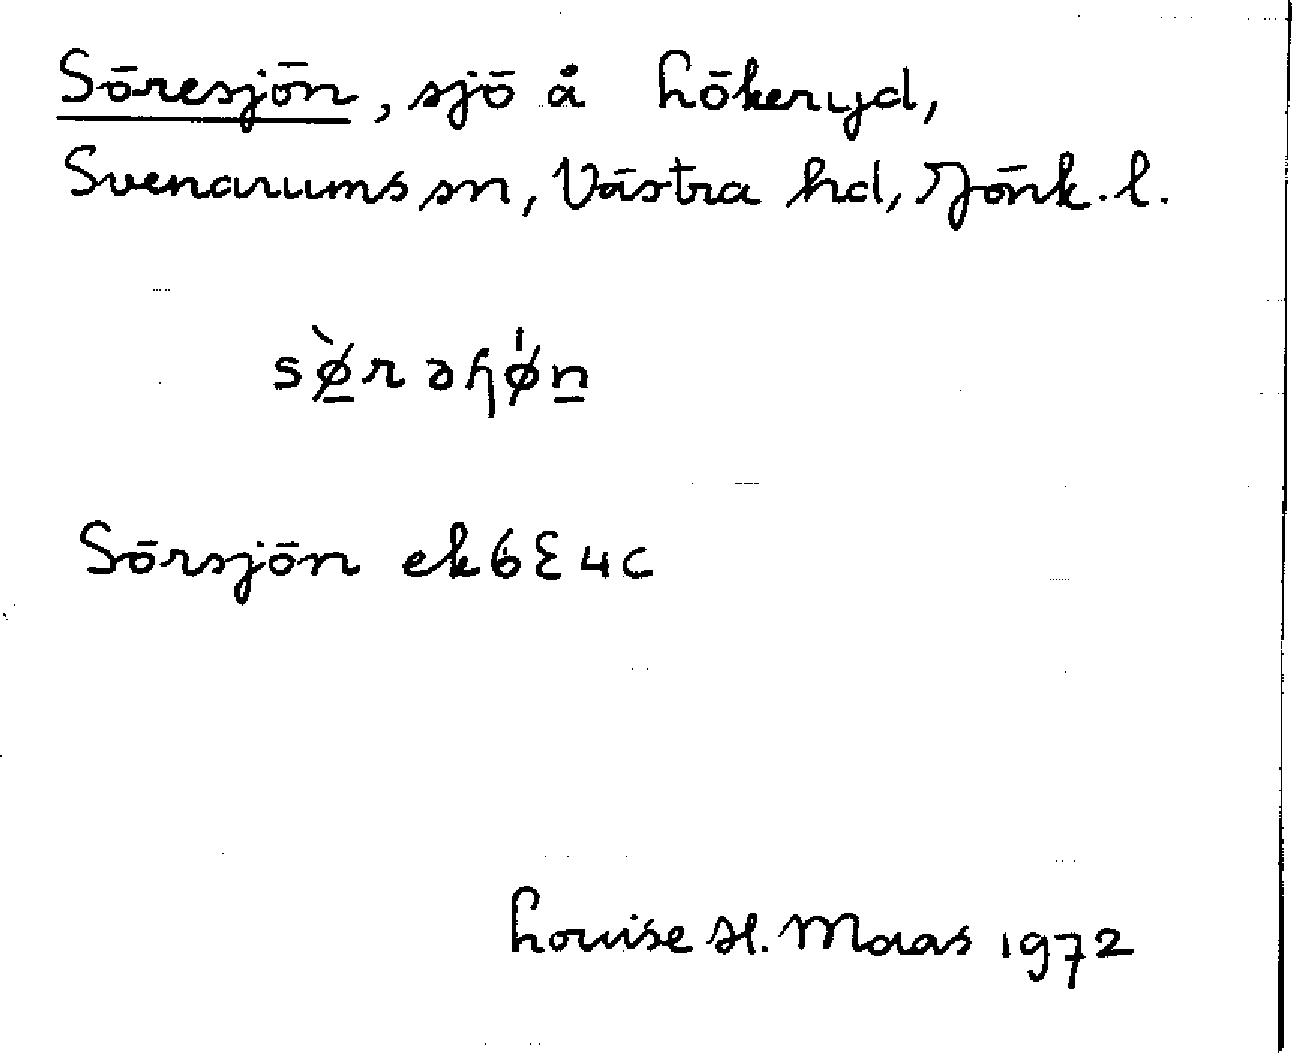 Söresjön, sjö å Lökeryd,
Svenarums sn, Västra hd, Jönk. l.
sø̀rəɧø̍n
Sörsjön ek 6E4c
Louise H. Maas 1972